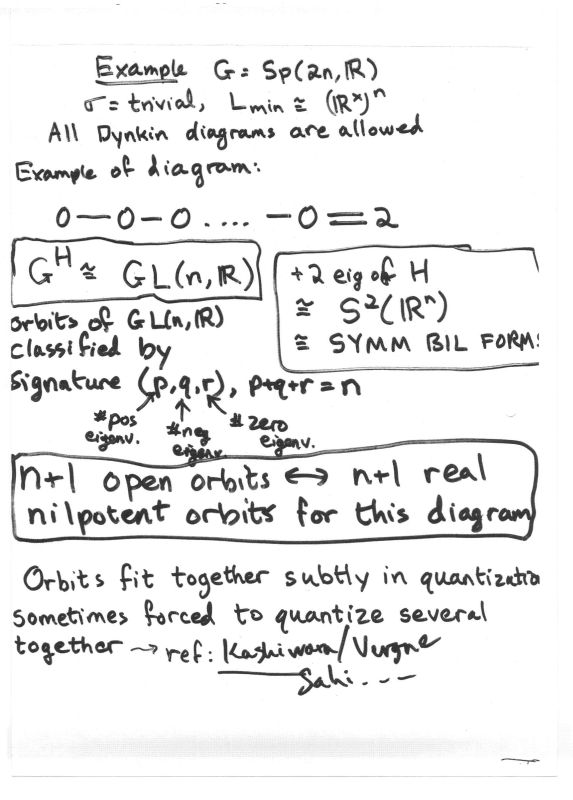 Example G = Sp(2n, ℝ)
σ = trivial, Lmin ≅ (ℝˣ)ⁿ
All Dynkin diagrams are allowed
Example of diagram:
0—0—0 .... —0=2
Gᴴ ≅ GL(n, ℝ)
+2 eig of H
≅ S²(ℝⁿ)
≅ SYMM BIL FORMS
orbits of GL(n, ℝ)
classified by
signature (p,q,r), p+q+r = n
#pos eigenv.
#neg eigenv.
#zero eigenv.
n+1 open orbits ↔ n+1 real
nilpotent orbits for this diagram
Orbits fit together subtly in quantizatio
sometimes forced to quantize several
together ⇝ ref: Kashiwara/Vergne
Sahi ---